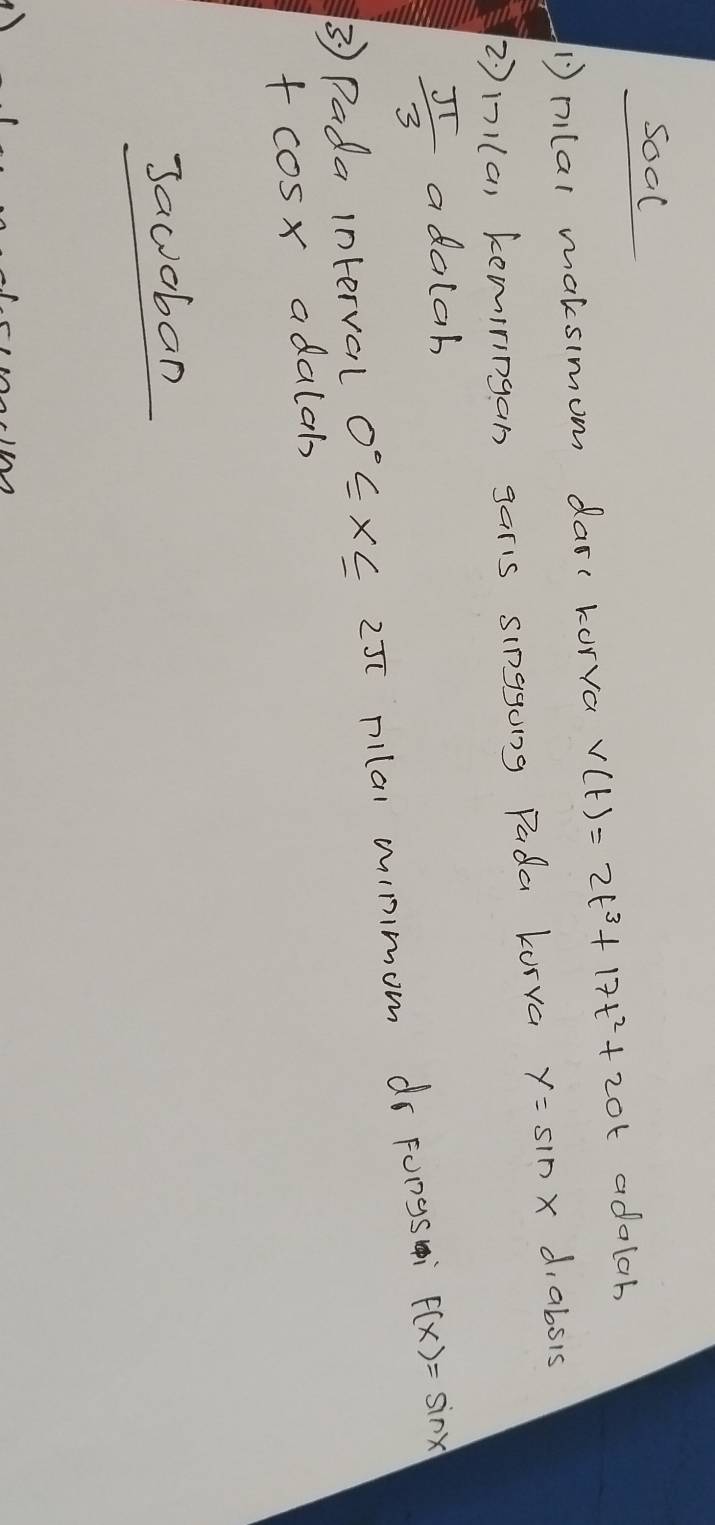 Soal
1.) nilai maksimum dari kurva v(t) = 2t³ + 17t² + 20t adalah
2.) nilai kemiringan garis singgung Pada kurva y = sin x diabsis
π/3 adalah
3.) Pada interval 0° ≤ x ≤ 2π nilai minimum dr Fungsi F(x) = sin x
+ cos x adalah
Jawaban